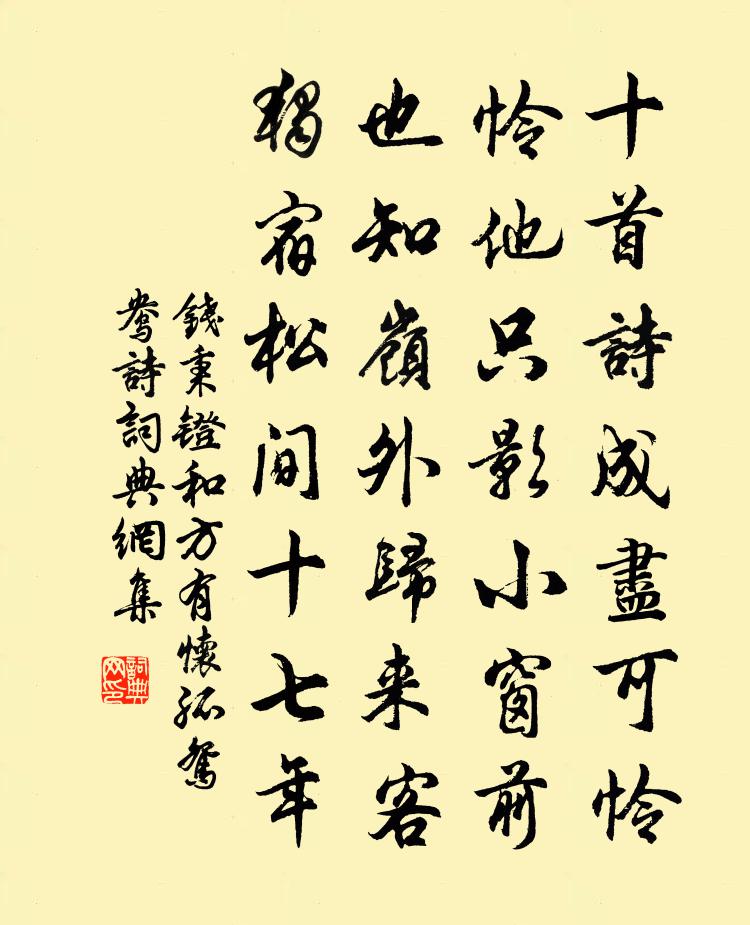 十首詩成盡可怜
怜他只影小窗前
也知嶺外歸来客
獨宿松间十七年
錢秉鐙和方有懷孤鴛
鴦詩詞典網集
詞典
网印